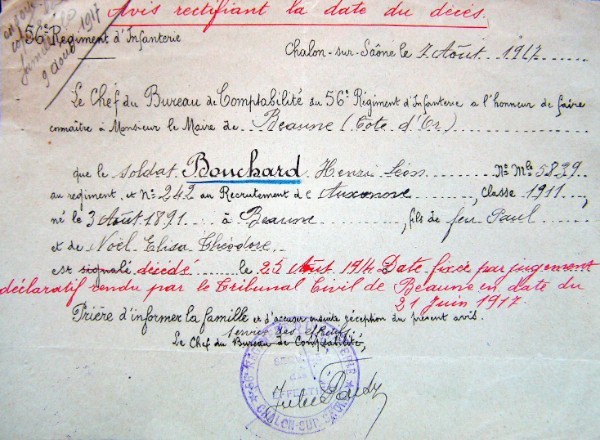 Avis rectifiant la date du décès.
1917
9 août
56e Régiment d'Infanterie
Chalon-sur-Saône le 7 Août 1917
Le Chef du Bureau de Comptabilité du 56e Régiment d'Infanterie a l'honneur de faire
connaître à Monsieur le Maire de Beaune (Côte d'Or)
que le soldat Bouchard Henri Léon No Mle 5839
au régiment, et No 242 au Recrutement de Auxonne, Classe 1911,
né le 3 Août 1891 à Beaune, fils de feu Paul
et de Noël Elisa Théodore
est signalé décédé le 25 Août 1914 Date fixée par jugement
déclaratif rendu par le Tribunal Civil de Beaune en date du
21 juin 1917.
Prière d'informer la famille et d'accuser ensuite réception du présent avis.
service des effectifs
Le Chef du Bureau de Comptabilité,
CHALON-SUR-SAÔNE